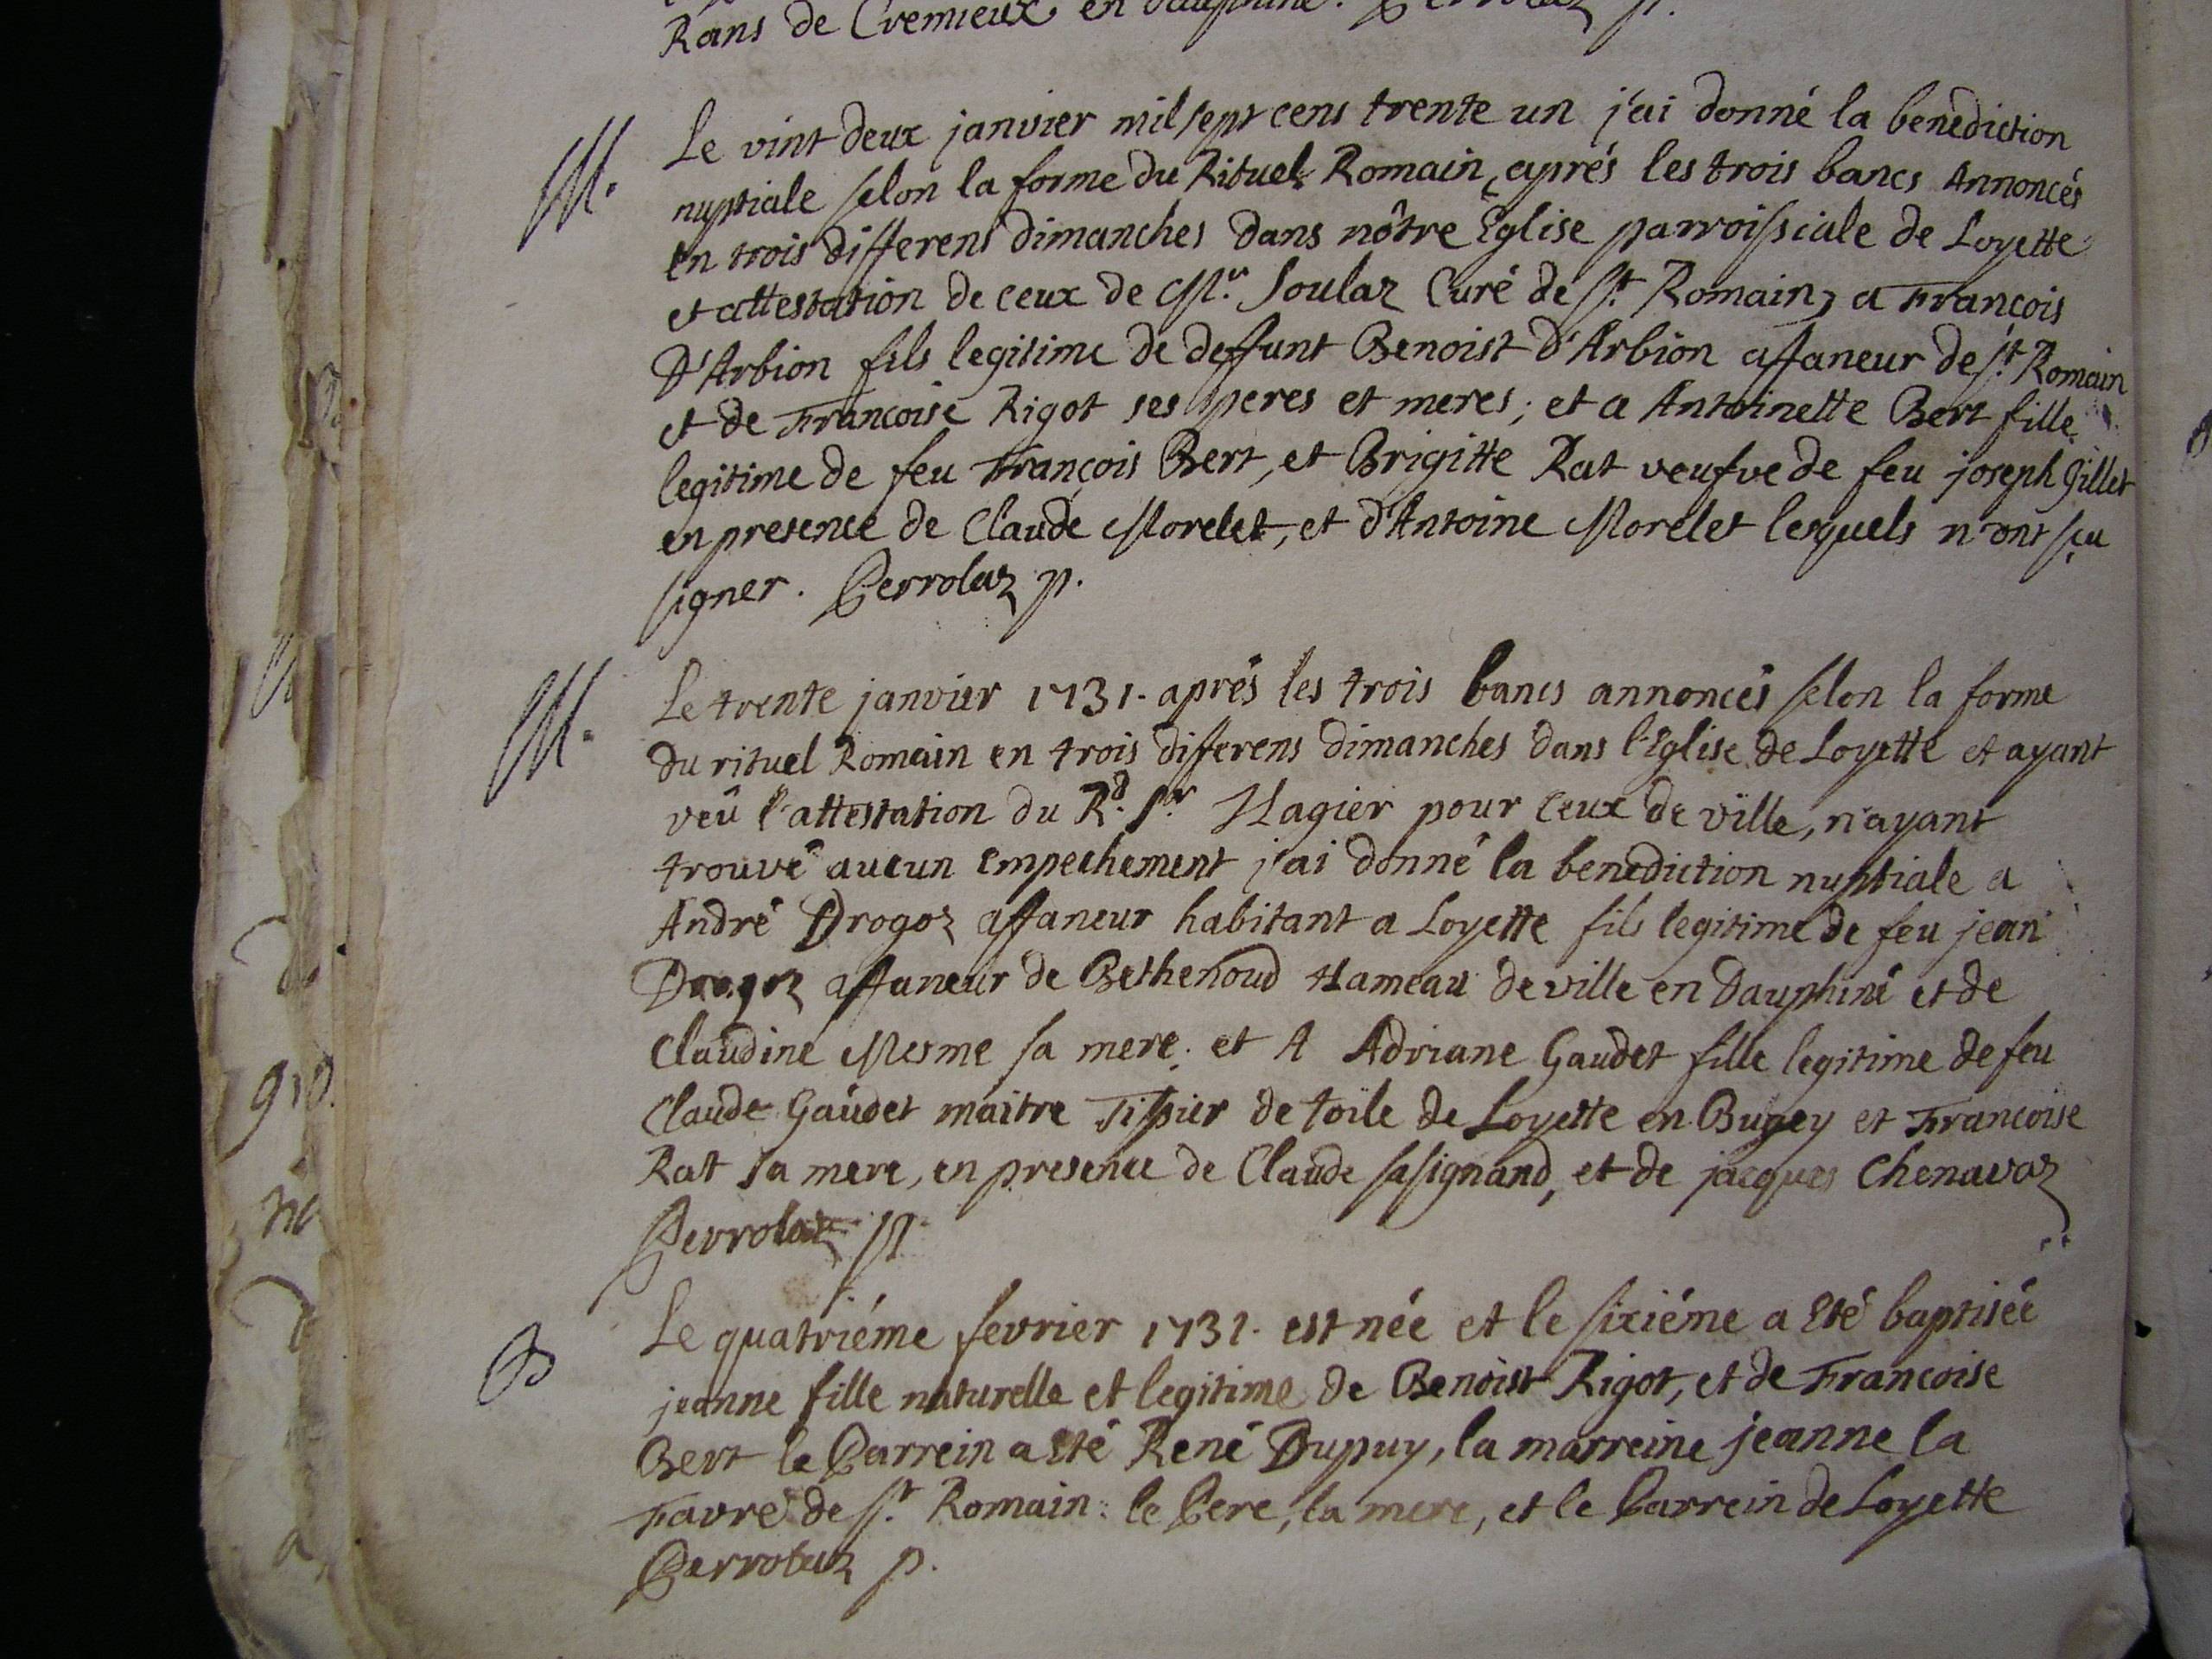 Rans de Cremieux en
M. Le vint deux janvier mil sept cens trente un j'ai donné la benediction
nuptiale selon la forme du Rituel Romain, aprés les trois bancs Annoncés
en trois differens dimanches dans nôtre Eglise parroissiale de Loyette
et attestation de ceux de Mr. Soulaz Curé de St. Romain, a François
D'Arbion fils legitime de deffunt Benoist d'Arbion affaneur de St. Romain
et de Francoise Rigot ses peres et meres; et a Antoinette Bert fille
legitime de feu François Bert, et Brigitte Rat veufve de feu joseph Gillet
en presence de Claude Morelet, et d'Antoine Morelet lesquels n'ont sçu
signer. Perrolaz p.
M. Le trente janvier 1731. aprés les trois bancs annoncés selon la forme
du rituel Romain en trois differens dimanches dans l'Eglise de Loyette et ayant
veû l'attestation du Rd. Sr. Magier pour ceux de ville, n'ayant
trouvé aucun empechement j'ai donné la benediction nuptiale a
André Drogoz affaneur habitant a Loyette fils legitime de feu jean
Drogoz affaneur de Bethenoud Hameau de ville en Dauphiné et de
Claudine Mesme sa mere; et A Adriane Gaudet fille legitime de feu
Claude Gaudet maitre Tissier de toile de Loyette en Bugey et Francoise
Rat sa mere, en presence de Claude sasignand, et de jacques Chenavaz
Perrolaz p.
B Le quatriéme fevrier 1731. est née et le sixiéme a Eté baptisée
jeanne fille naturelle et legitime de Benoist Rigot, et de Francoise
Bert le Parrein a Eté René Dupuy, la marreine jeanne la
Favre de St. Romain: le Pere, la mere, et le Parrein de Loyette
Perrolaz p.